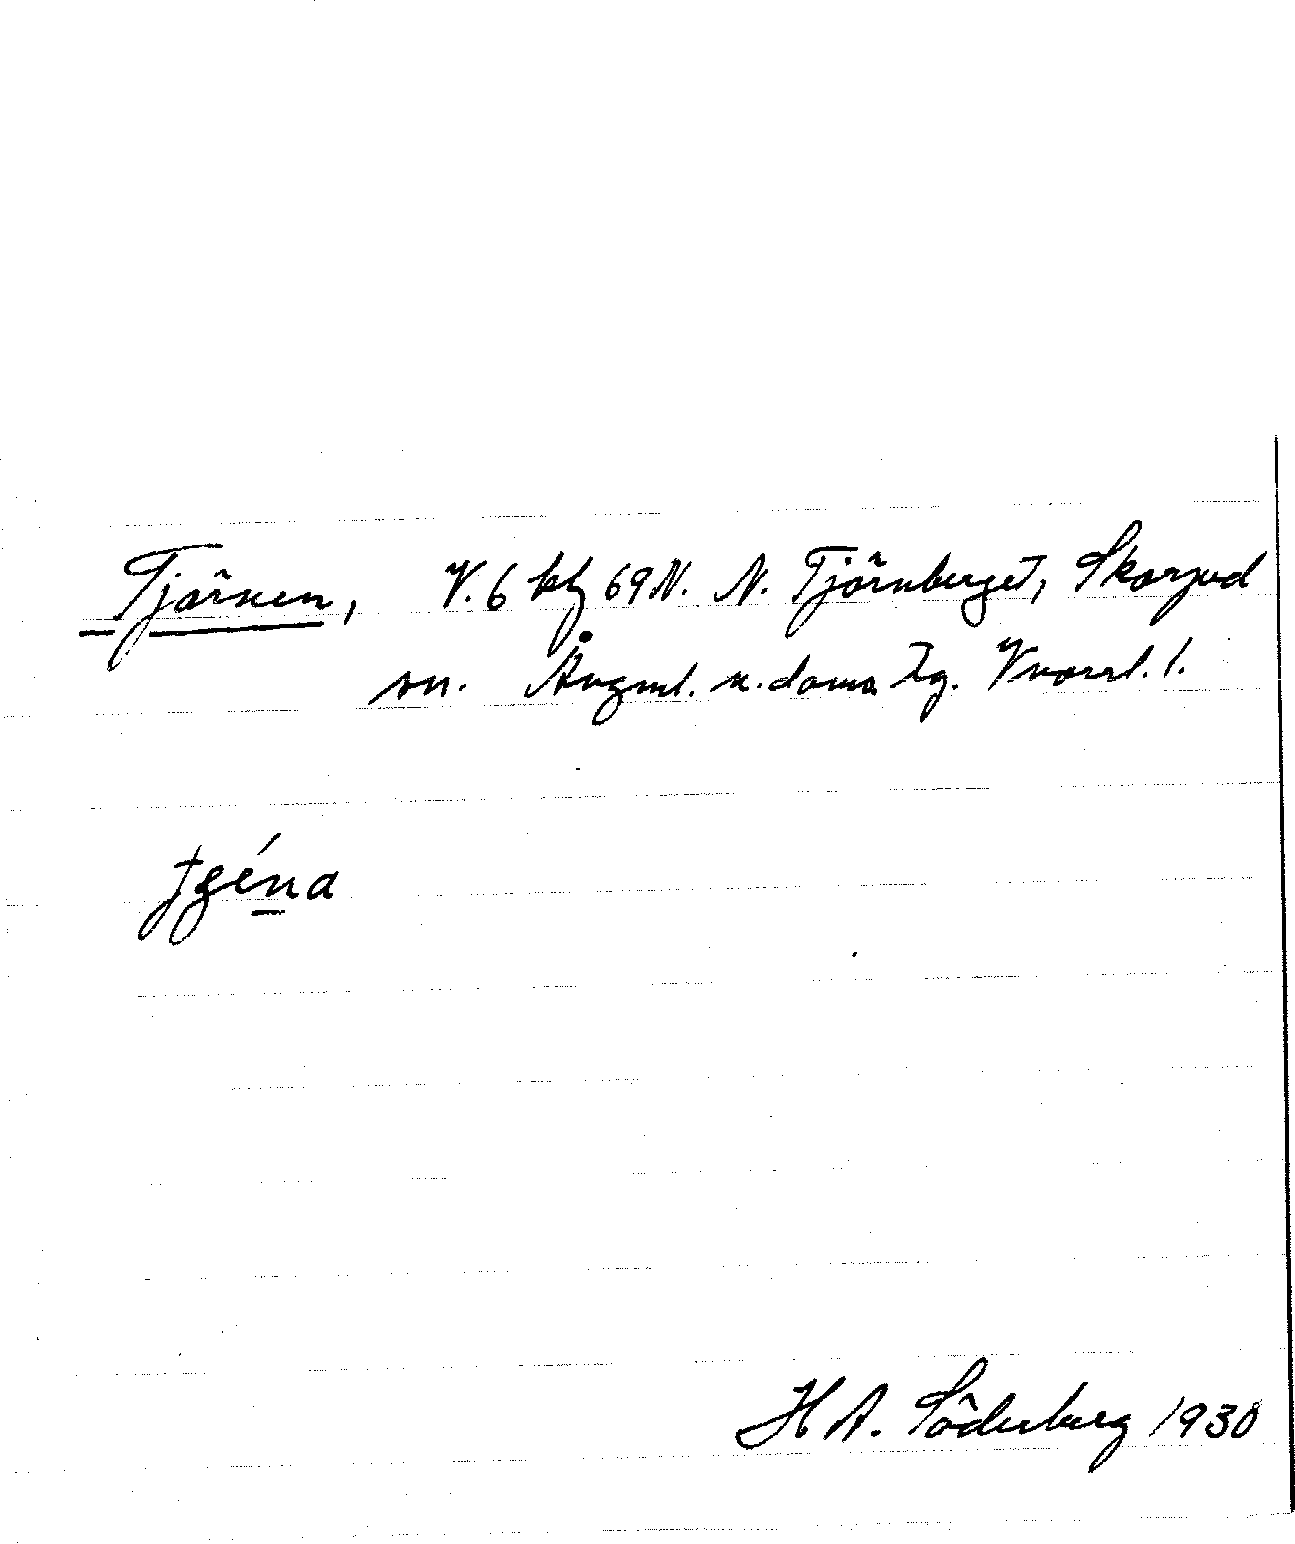 Tjärnen, V. 6 bl 69 N. N. Tjärnberget, Skorped
sn. Ångml. n. doms tg. Vnorrl. l.
H A. Söderberg 1930